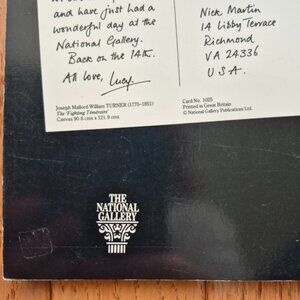 and have just had a
wonderful day at the
National Gallery.
Back on the 14th.
All love, Lucy
Nick Martin
14 Libby Terrace
Richmond
VA 24336
U.S.A.
Joseph Mallord William TURNER (1775–1851)
The 'Fighting Téméraire'
Canvas 90.8 cms x 121.9 cms
Card No. 1025
Printed in Great Britain
© National Gallery Publications Ltd.
THE
NATIONAL
GALLERY